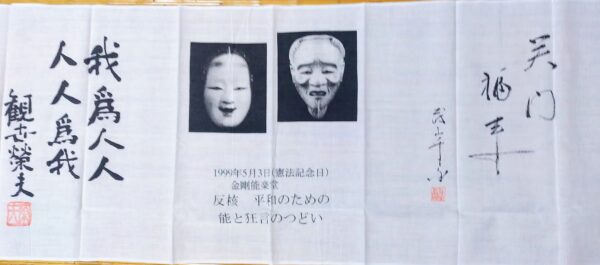 笑门
福来
茂山千
1999年5月3日(憲法記念日)
金剛能楽堂
反核　平和のための
能と狂言のつどい
我爲人人
人人爲我
観世榮夫